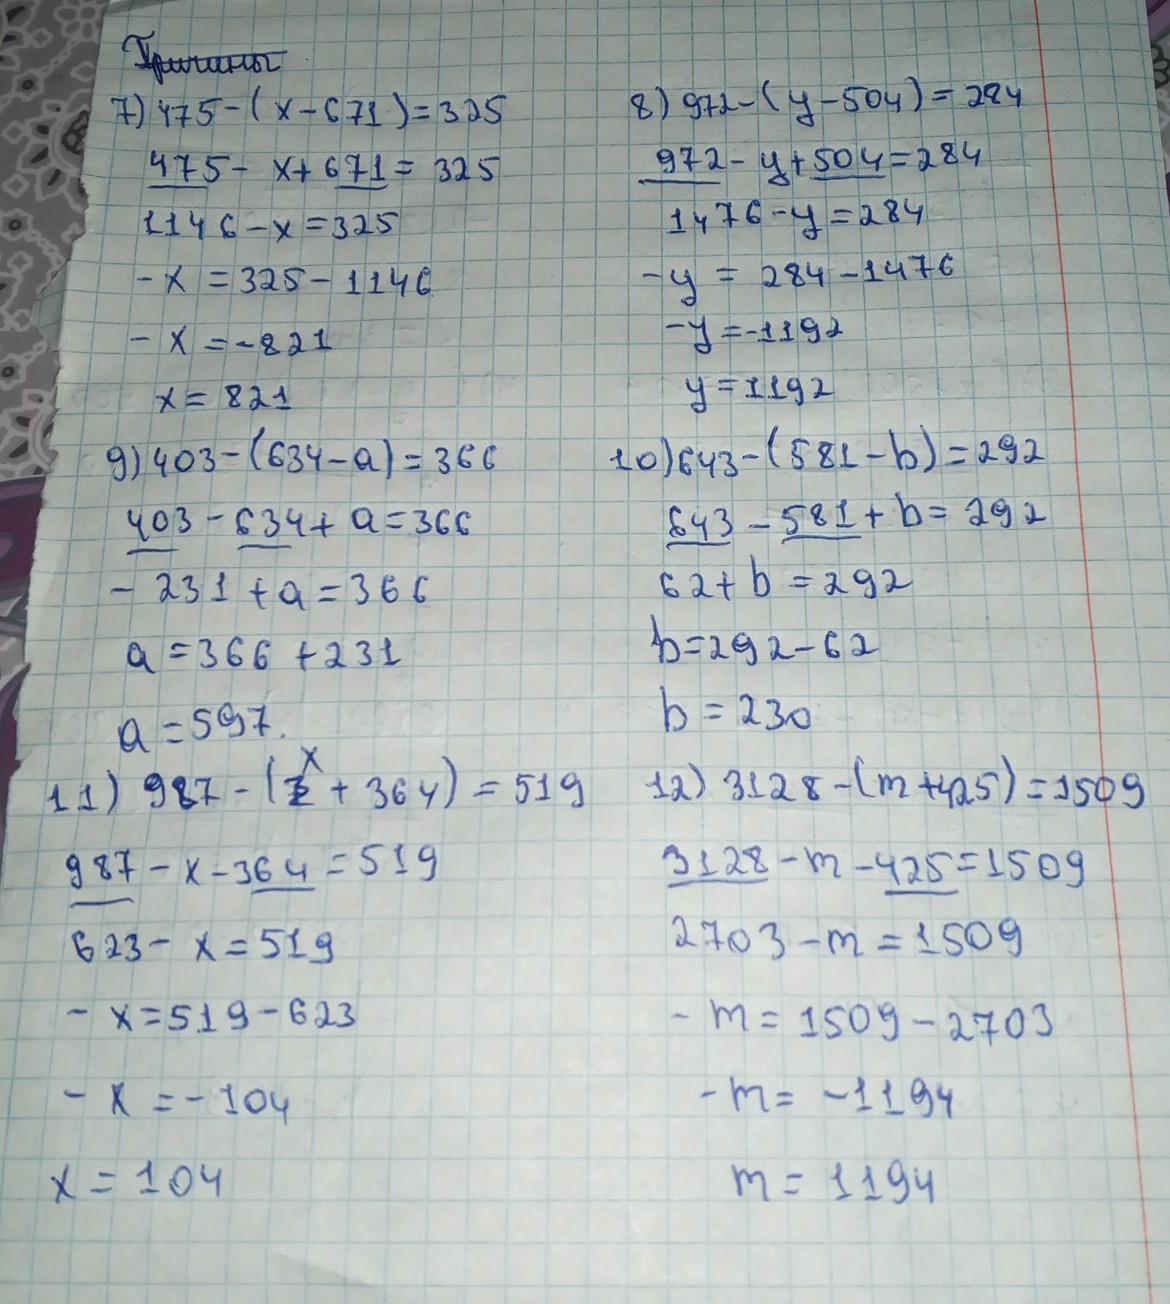 7) 475-(x-671)=325
475-x+671=325
1146-x=325
-x=325-1146
-x=-821
x=821
8) 972-(y-504)=284
972-y+504=284
1476-y=284
-y=284-1476
-y=-1192
y=1192
9) 403-(634-a)=366
403-634+a=366
-231+a=366
a=366+231
a=597.
10) 643-(581-b)=292
643-581+b=292
62+b=292
b=292-62
b=230
11) 987-(x+364)=519
987-x-364=519
623-x=519
-x=519-623
-x=-104
x=104
12) 3128-(m+425)=1509
3128-m-425=1509
2703-m=1509
-m=1509-2703
-m=-1194
m=1194